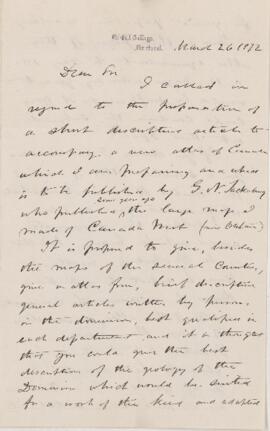 McGill College,
Montreal.
March 26 1872
Dear Sir
I called in
regard to the preparation of
a short descriptive article to
accompany a new atlas of Canada
which I am preparing and which
is to be published by G. N. Tackabury
some years ago
who published the large map I
made of Canada West (now Ontario)
It is proposed to give, besides
the maps of the several Counties,
give in atlas form, brief descriptive
general articles written by persons
in the dominion, best qualified in
each department and it is thought
that you could give the best
description of the geology of the
Dominion which would be suited
for a work of the kind and adapted